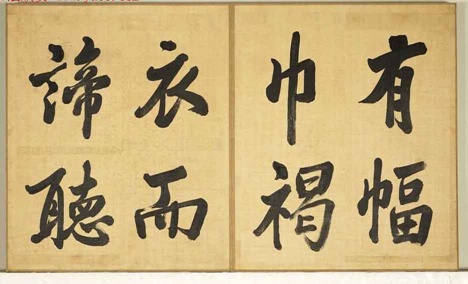 有幅
巾褐
衣而
諦聽